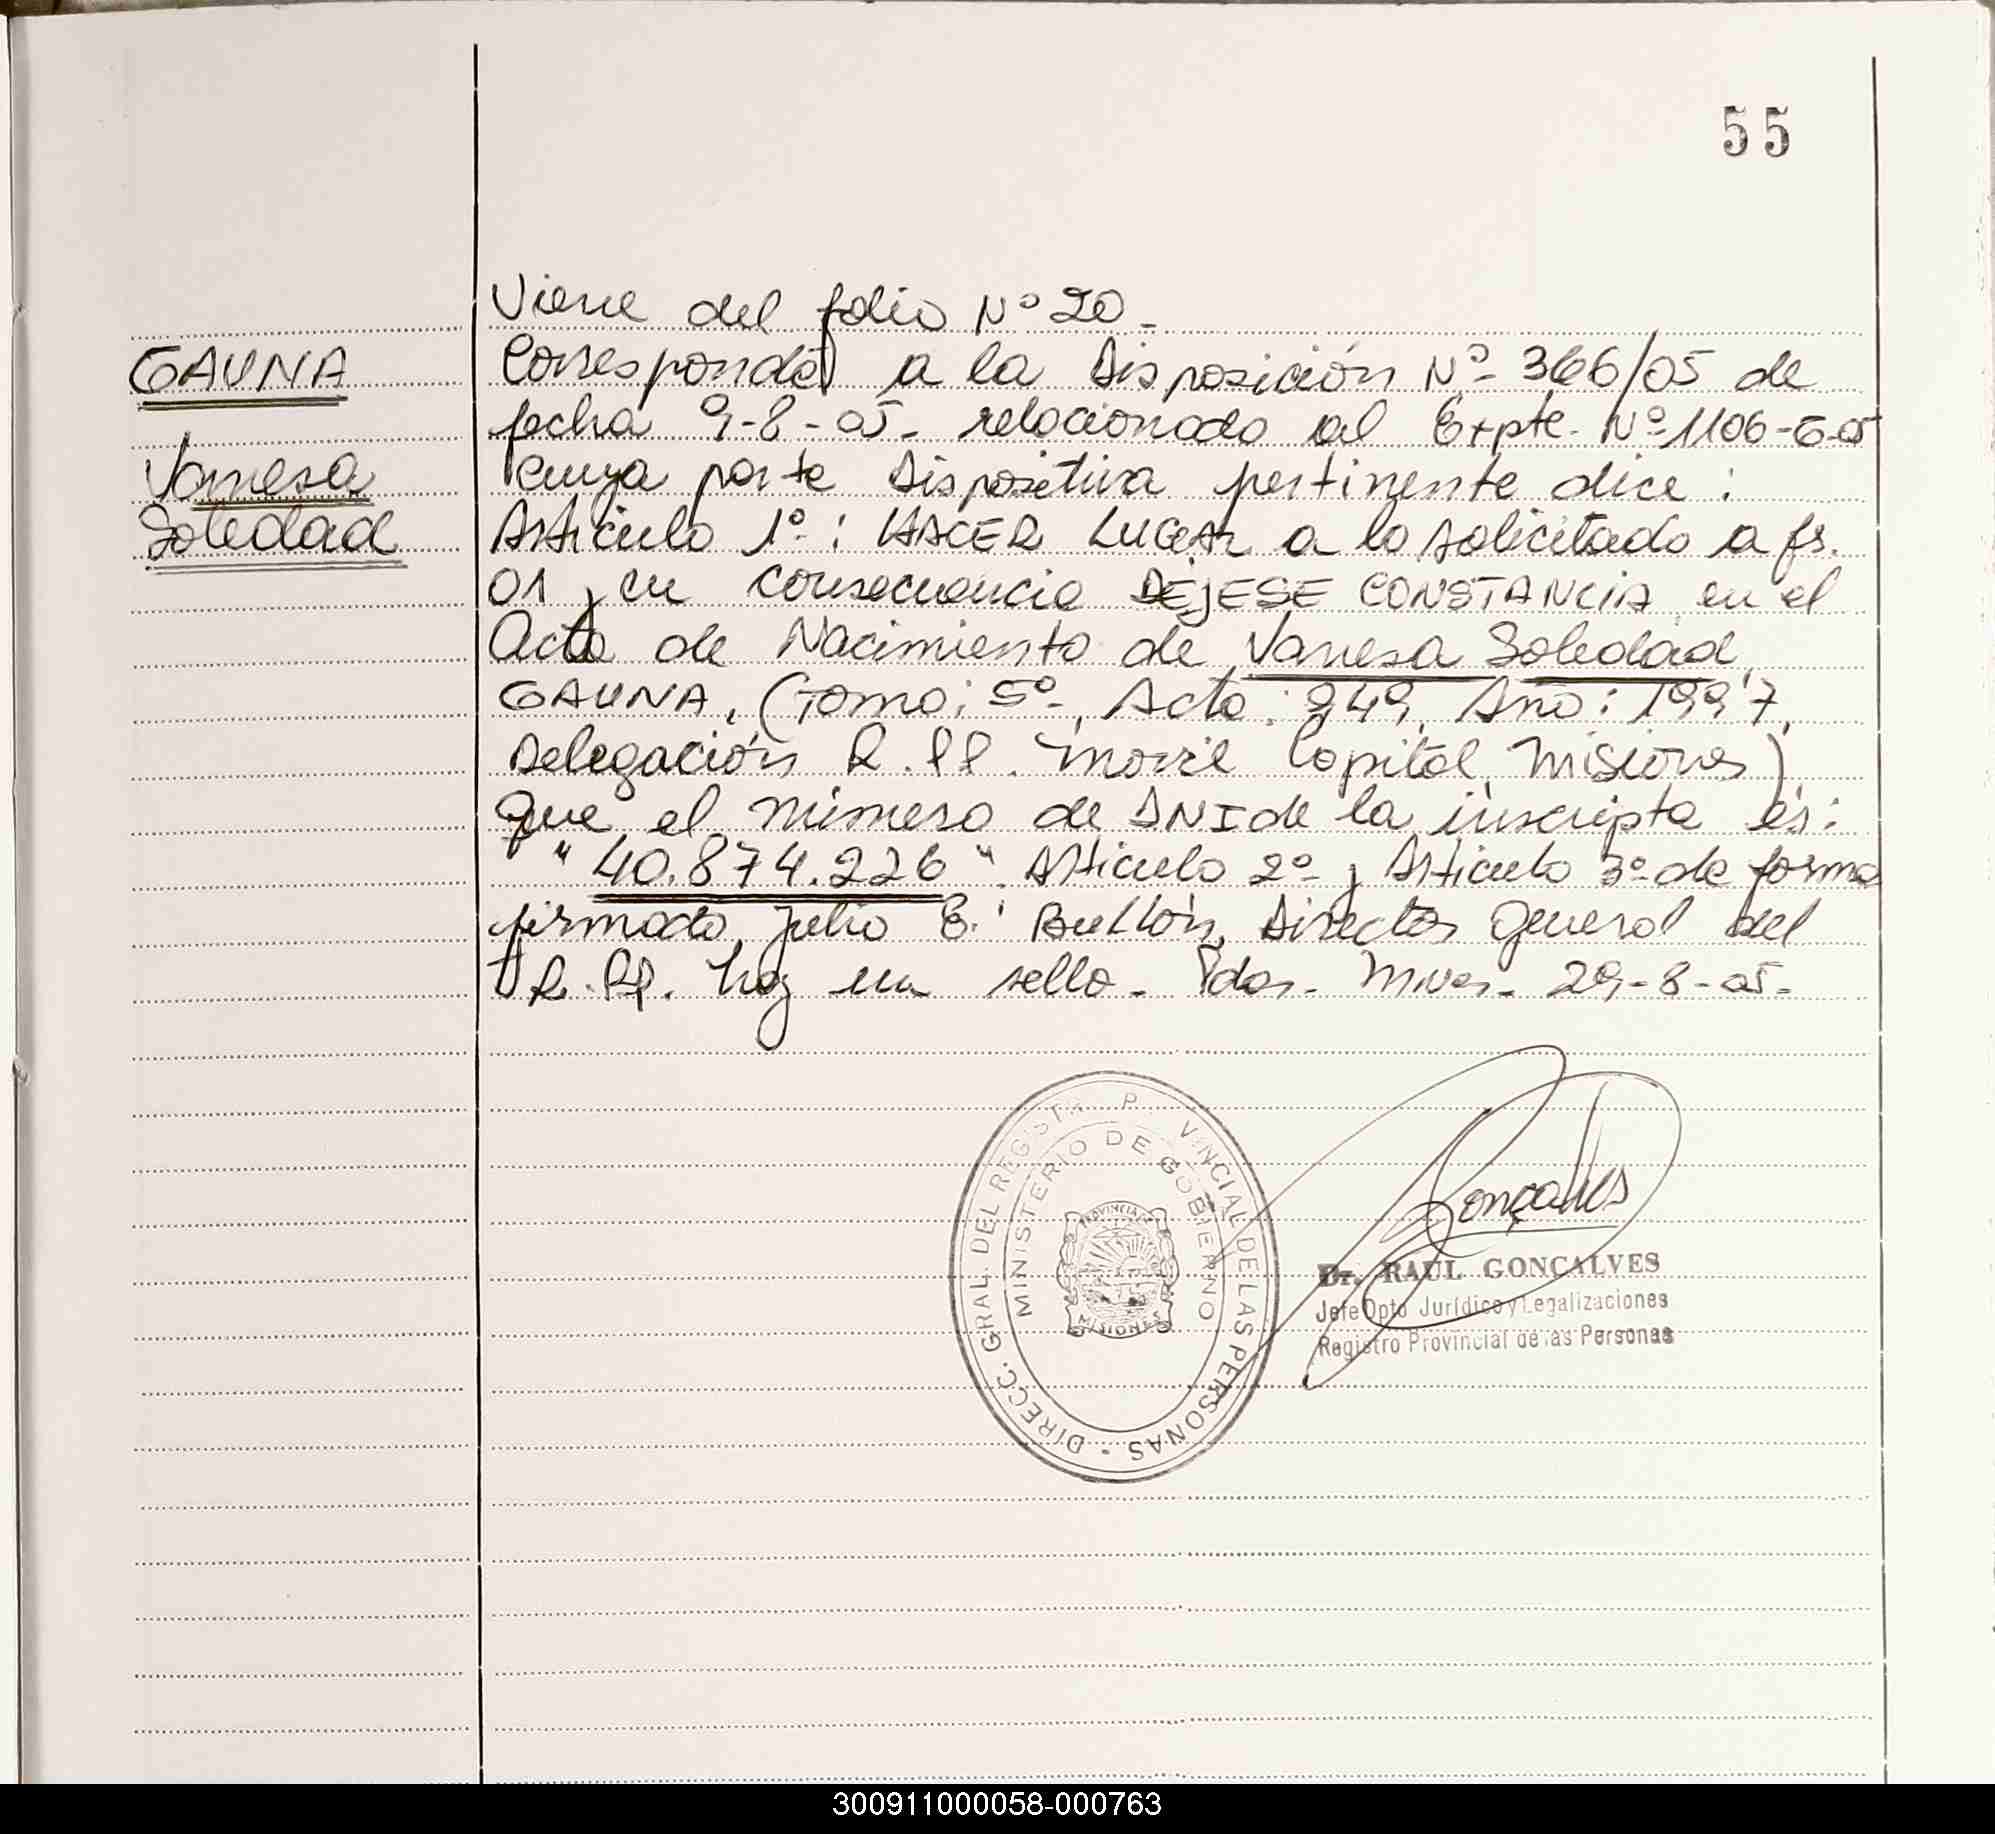 55
Viene del folio Nº 20 -
GAUNA
Corresponde a la Disposición Nº 366/05 de
fecha 9-8-05- relacionado al Expte. Nº 1106-G-05
Vanesa
cuya parte Dispositiva pertinente dice :
Soledad
Artículo 1º : HACER LUGAR a lo solicitado a fs.
01 y en consecuencia DÉJESE CONSTANCIA en el
Acta de Nacimiento de Vanesa Soledad
GAUNA, (Tomo: 5º, Acta: 949, Año: 1997,
Delegación R.PP. Movil Capital, Misiones)
que el número de DNI de la inscripta es:
" 40.874.226 ". Artículo 2º y Artículo 3º de forma
firmado, Julio E. Bullón, Director General del
R.PP. hay un sello- Pdas- Mnes- 29-8-05-
DIRECC. GRAL. DEL REGISTR P VINCIAL DE LAS PERSONAS -
MINISTERIO DE GOBIERNO
PROVINCIA
MISIONES
Gonçalves
Dr. RAUL GONÇALVES
Jefe Dpto Jurídico y Legalizaciones
Registro Provincial de las Personas
300911000058-000763